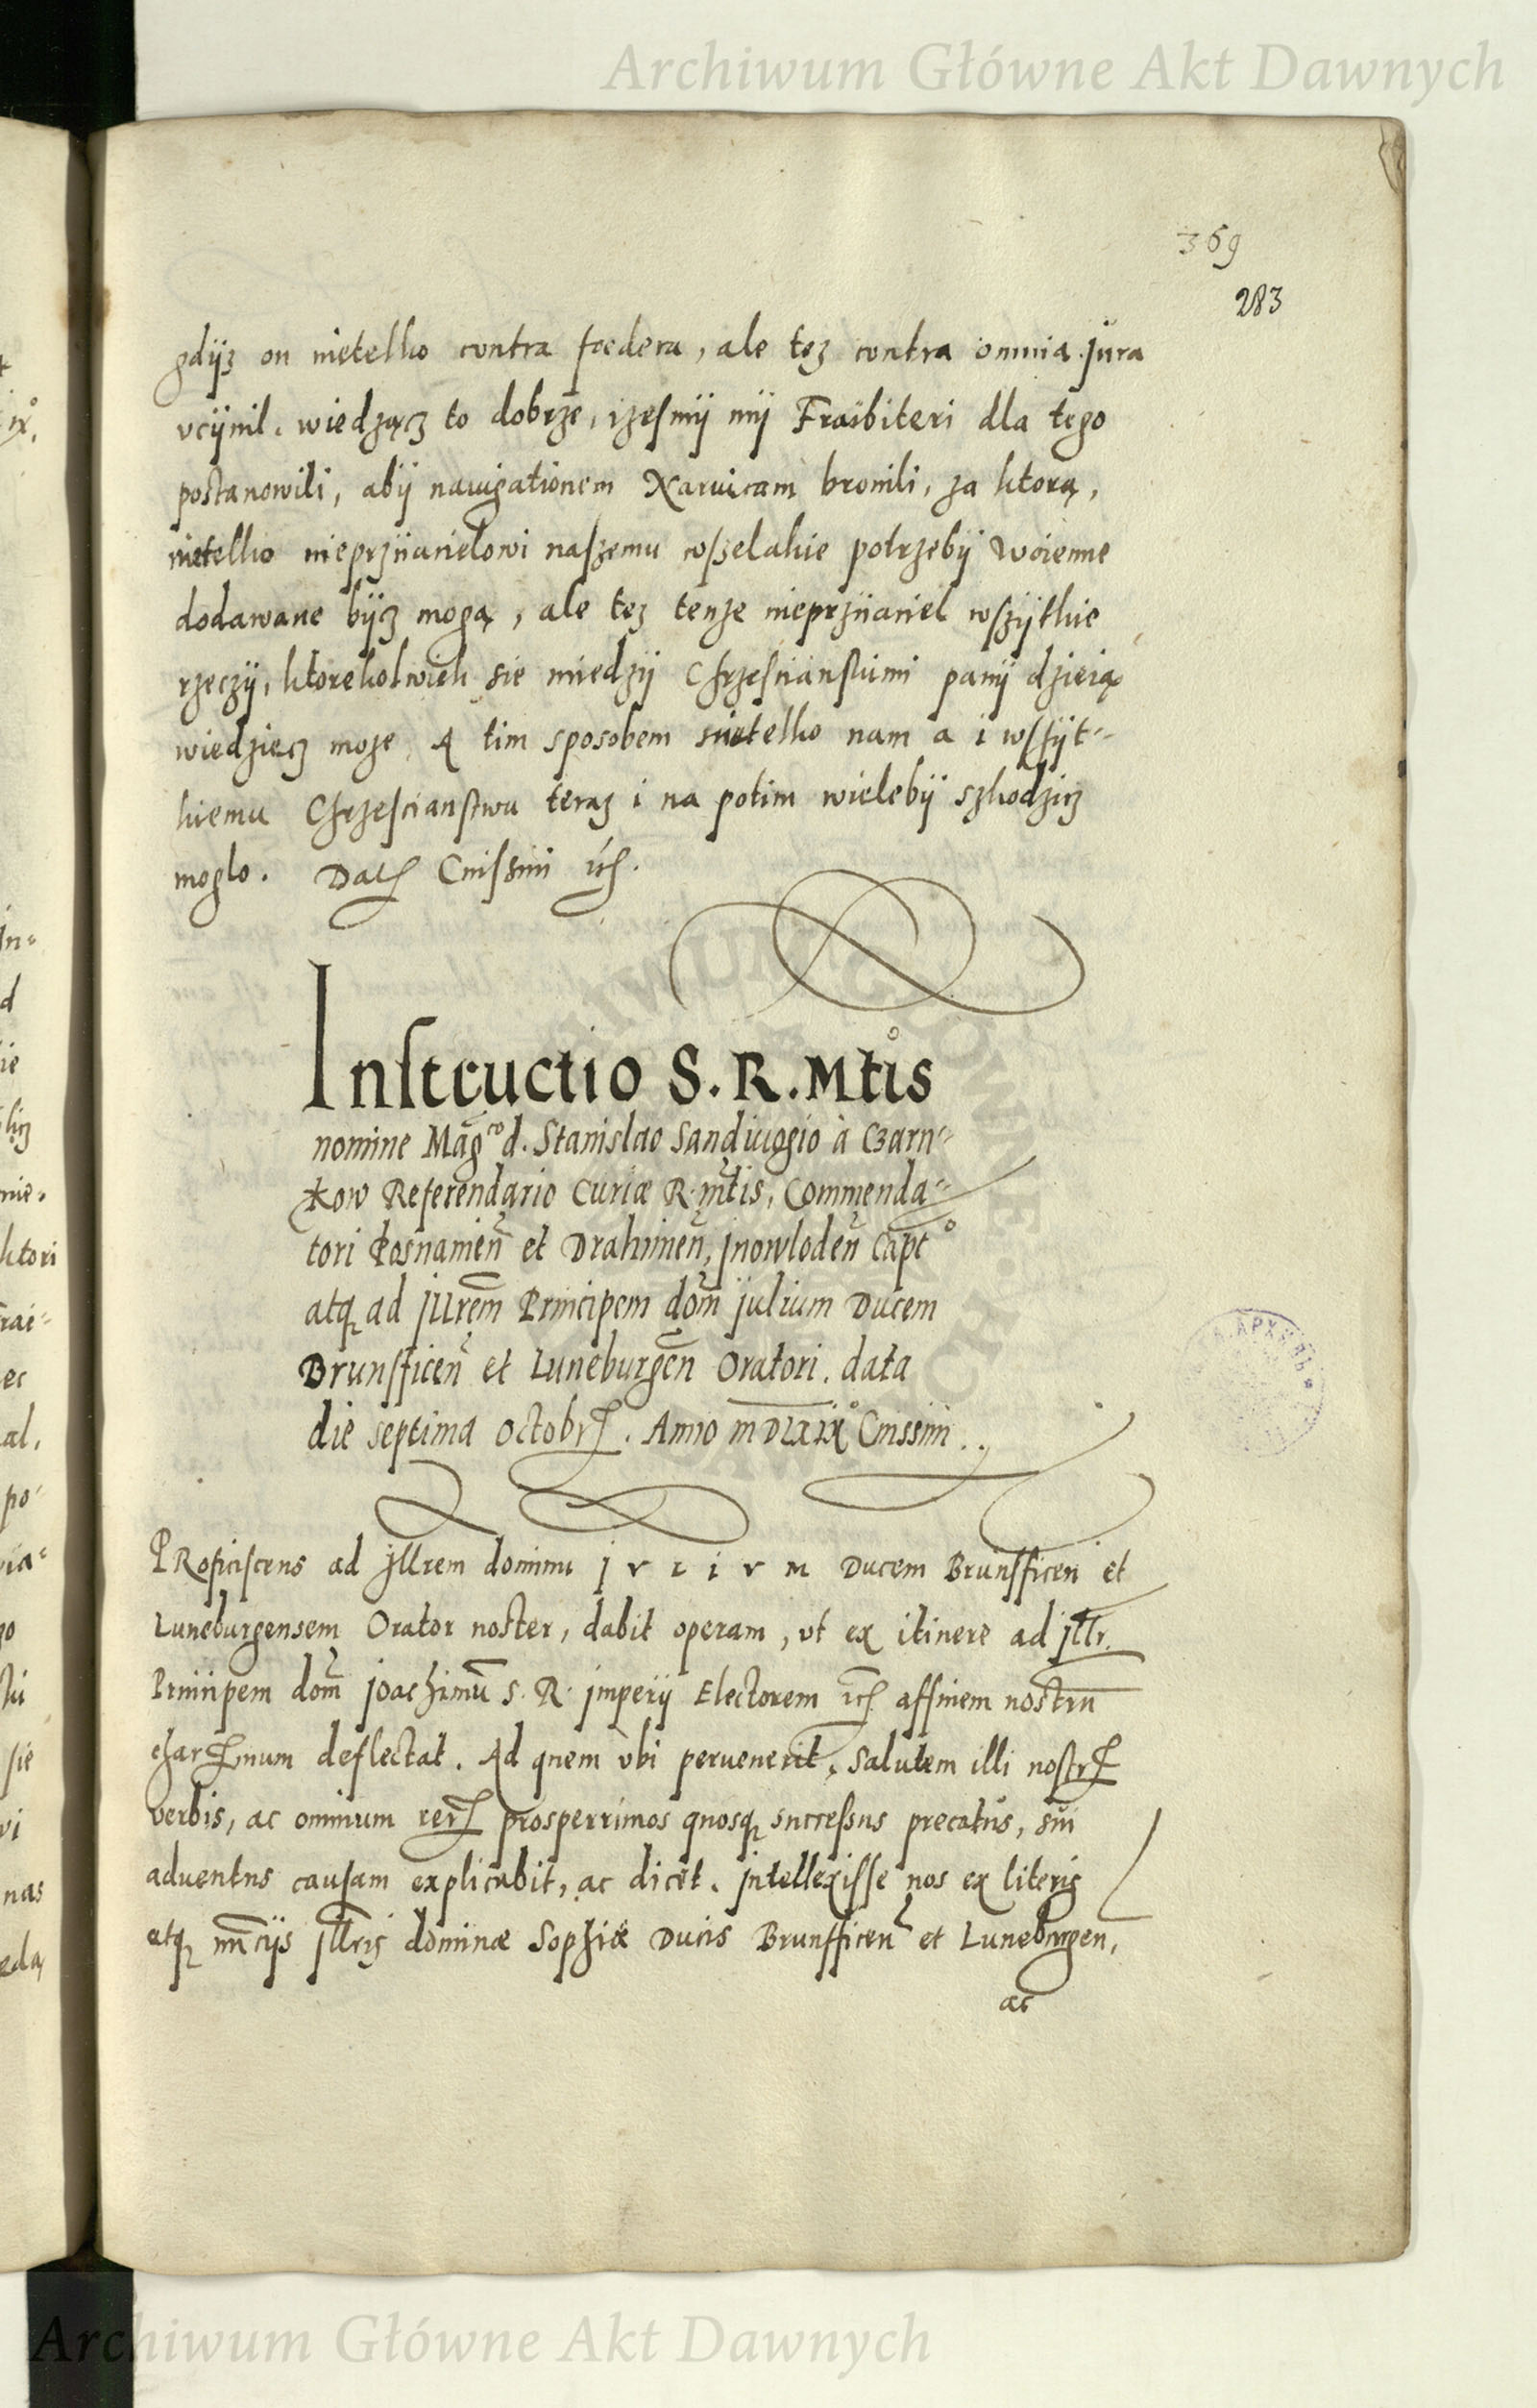 Archiwum Główne Akt Dawnych
369
283
gdÿz on nietelko contra fœdera, ale tez contra omnia jura
vcÿnil. wiedzącz to dobrze, izesmÿ mÿ Fraibiteri dla tego
postanowili, abÿ nauigationem Naruicam bronili, za ktorą,
nietelko nieprziiacielowi naszemu wszelakie potrzebÿ woienne
dodawane bÿcz mogą, ale tez tenze nieprziiaciel wszÿtkie
rzeczÿ, ktorekolwiek sie miedzÿ Chrzescianskimi panÿ dzieią
wiedziecz moze. A tim sposobem nietelko nam a i wssÿt-
kiemu Chrzescianstwu teraz i na potim wielebÿ szkodzicz
moglo. Datꝭ Cnissini ꝛcꝭ.
Instructio S. R. Mtis
nomine Mag̃co d. Stanislao Sandiuogio à Czarn-
kow Referendario Curiæ R. mtis, Commenda-
tori Posnanien̄ et Drahimen̄, jnowloden̄ Capto
atqꝫ ad jllrem̄ Principem dom̄ julium Ducem
Brunsficen̄ et Luneburgen̄ Oratori. data
die septima octobrꝭ. Anno MDLXIX Cnissini.
PRoficiscens ad jllrem dominū j v l i v m Ducem Brunsficen̄ et
Luneburgensem Orator noster, dabit operam, vt ex itinere ad jllr.
Principem dom̄ joachimū S. R. jmperij Electorem ꝛcꝭ affinem nostrū
charꝭmum deflectat. Ad quem vbi peruenerit, salutem illi nostrꝭ
verbis, ac omnium rerꝭ prosperrimos quosqꝫ successus precatus, sui
aduentus causam explicabit, ac dicet. jntellexisse nos ex literis
atqꝫ nūcijs jllris dominæ Sophiæ Ducis Brunsficen̄ et Luneburgen,
ac
Archiwum Główne Akt Dawnych